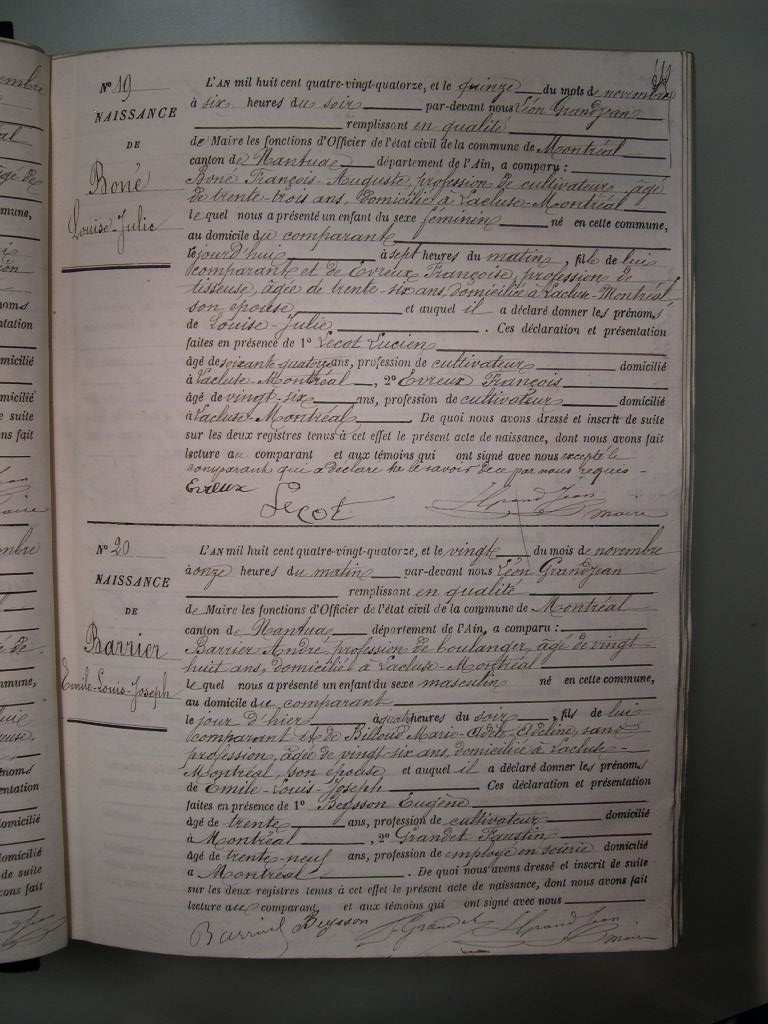 Nº 19
NAISSANCE
DE
Boné
Louise-Julie
L'AN mil huit cent quatre-vingt-quatorze, et le quinze du mois de novembre
à six heures du soir par-devant nous Léon Grandjean
remplissant en qualité
de Maire les fonctions d'Officier de l'état civil de la commune de Montréal
canton de Nantua département de l'Ain, a comparu :
Boné François-Auguste, profession de cultivateur, âgé
de trente-trois ans, domicilié à Lacluse-Montréal
lequel nous a présenté un enfant du sexe féminin né en cette commune,
au domicile du comparant
le jourd'hui à sept heures du matin, fille de lui
comparant et de Evreux Françoise, profession de
tisseuse, âgée de trente-six ans, domiciliée à Lacluse-Montréal,
son épouse et auquel il a déclaré donner les prénoms
de Louise-Julie. Ces déclaration et présentation
faites en présence de 1º Lecot Lucien
âgé de soixante-quatre ans, profession de cultivateur domicilié
à Lacluse-Montréal, 2º Evreux François
âgé de vingt-six ans, profession de cultivateur domicilié
à Lacluse-Montréal. De quoi nous avons dressé et inscrit de suite
sur les deux registres tenus à cet effet le présent acte de naissance, dont nous avons fait
lecture au comparant et aux témoins qui ont signé avec nous excepté le
comparant qui a déclaré ne le savoir de ce par nous requis
Evreux Lecot LGrandjean
maire
Nº 20
NAISSANCE
DE
Barrier
Emile-Louis-Joseph
L'AN mil huit cent quatre-vingt-quatorze, et le vingt du mois de novembre
à onze heures du matin par-devant nous Léon Grandjean
remplissant en qualité
de Maire les fonctions d'Officier de l'état civil de la commune de Montréal
canton de Nantua département de l'Ain, a comparu :
Barrier André, profession de boulanger, âgé de vingt
huit ans, domicilié à Lacluse-Montréal
lequel nous a présenté un enfant du sexe masculin né en cette commune,
au domicile du comparant
le jour d'hier à quatre heures du soir, fils de lui
comparant et de Billoud Marie-Odile-Adeline, sans
profession, âgée de vingt-six ans, domiciliée à Lacluse-
Montréal, son épouse et auquel il a déclaré donner les prénoms
de Emile-Louis-Joseph. Ces déclaration et présentation
faites en présence de 1º Beysson Eugène
âgé de trente ans, profession de cultivateur domicilié
à Montréal, 2º Grandet Faustin
âgé de trente-neuf ans, profession de employé en soierie domicilié
à Montréal. De quoi nous avons dressé et inscrit de suite
sur les deux registres tenus à cet effet le présent acte de naissance, dont nous avons fait
lecture au comparant, et aux témoins qui ont signé avec nous
Barrier Beysson Grandet LGrandjean
maire